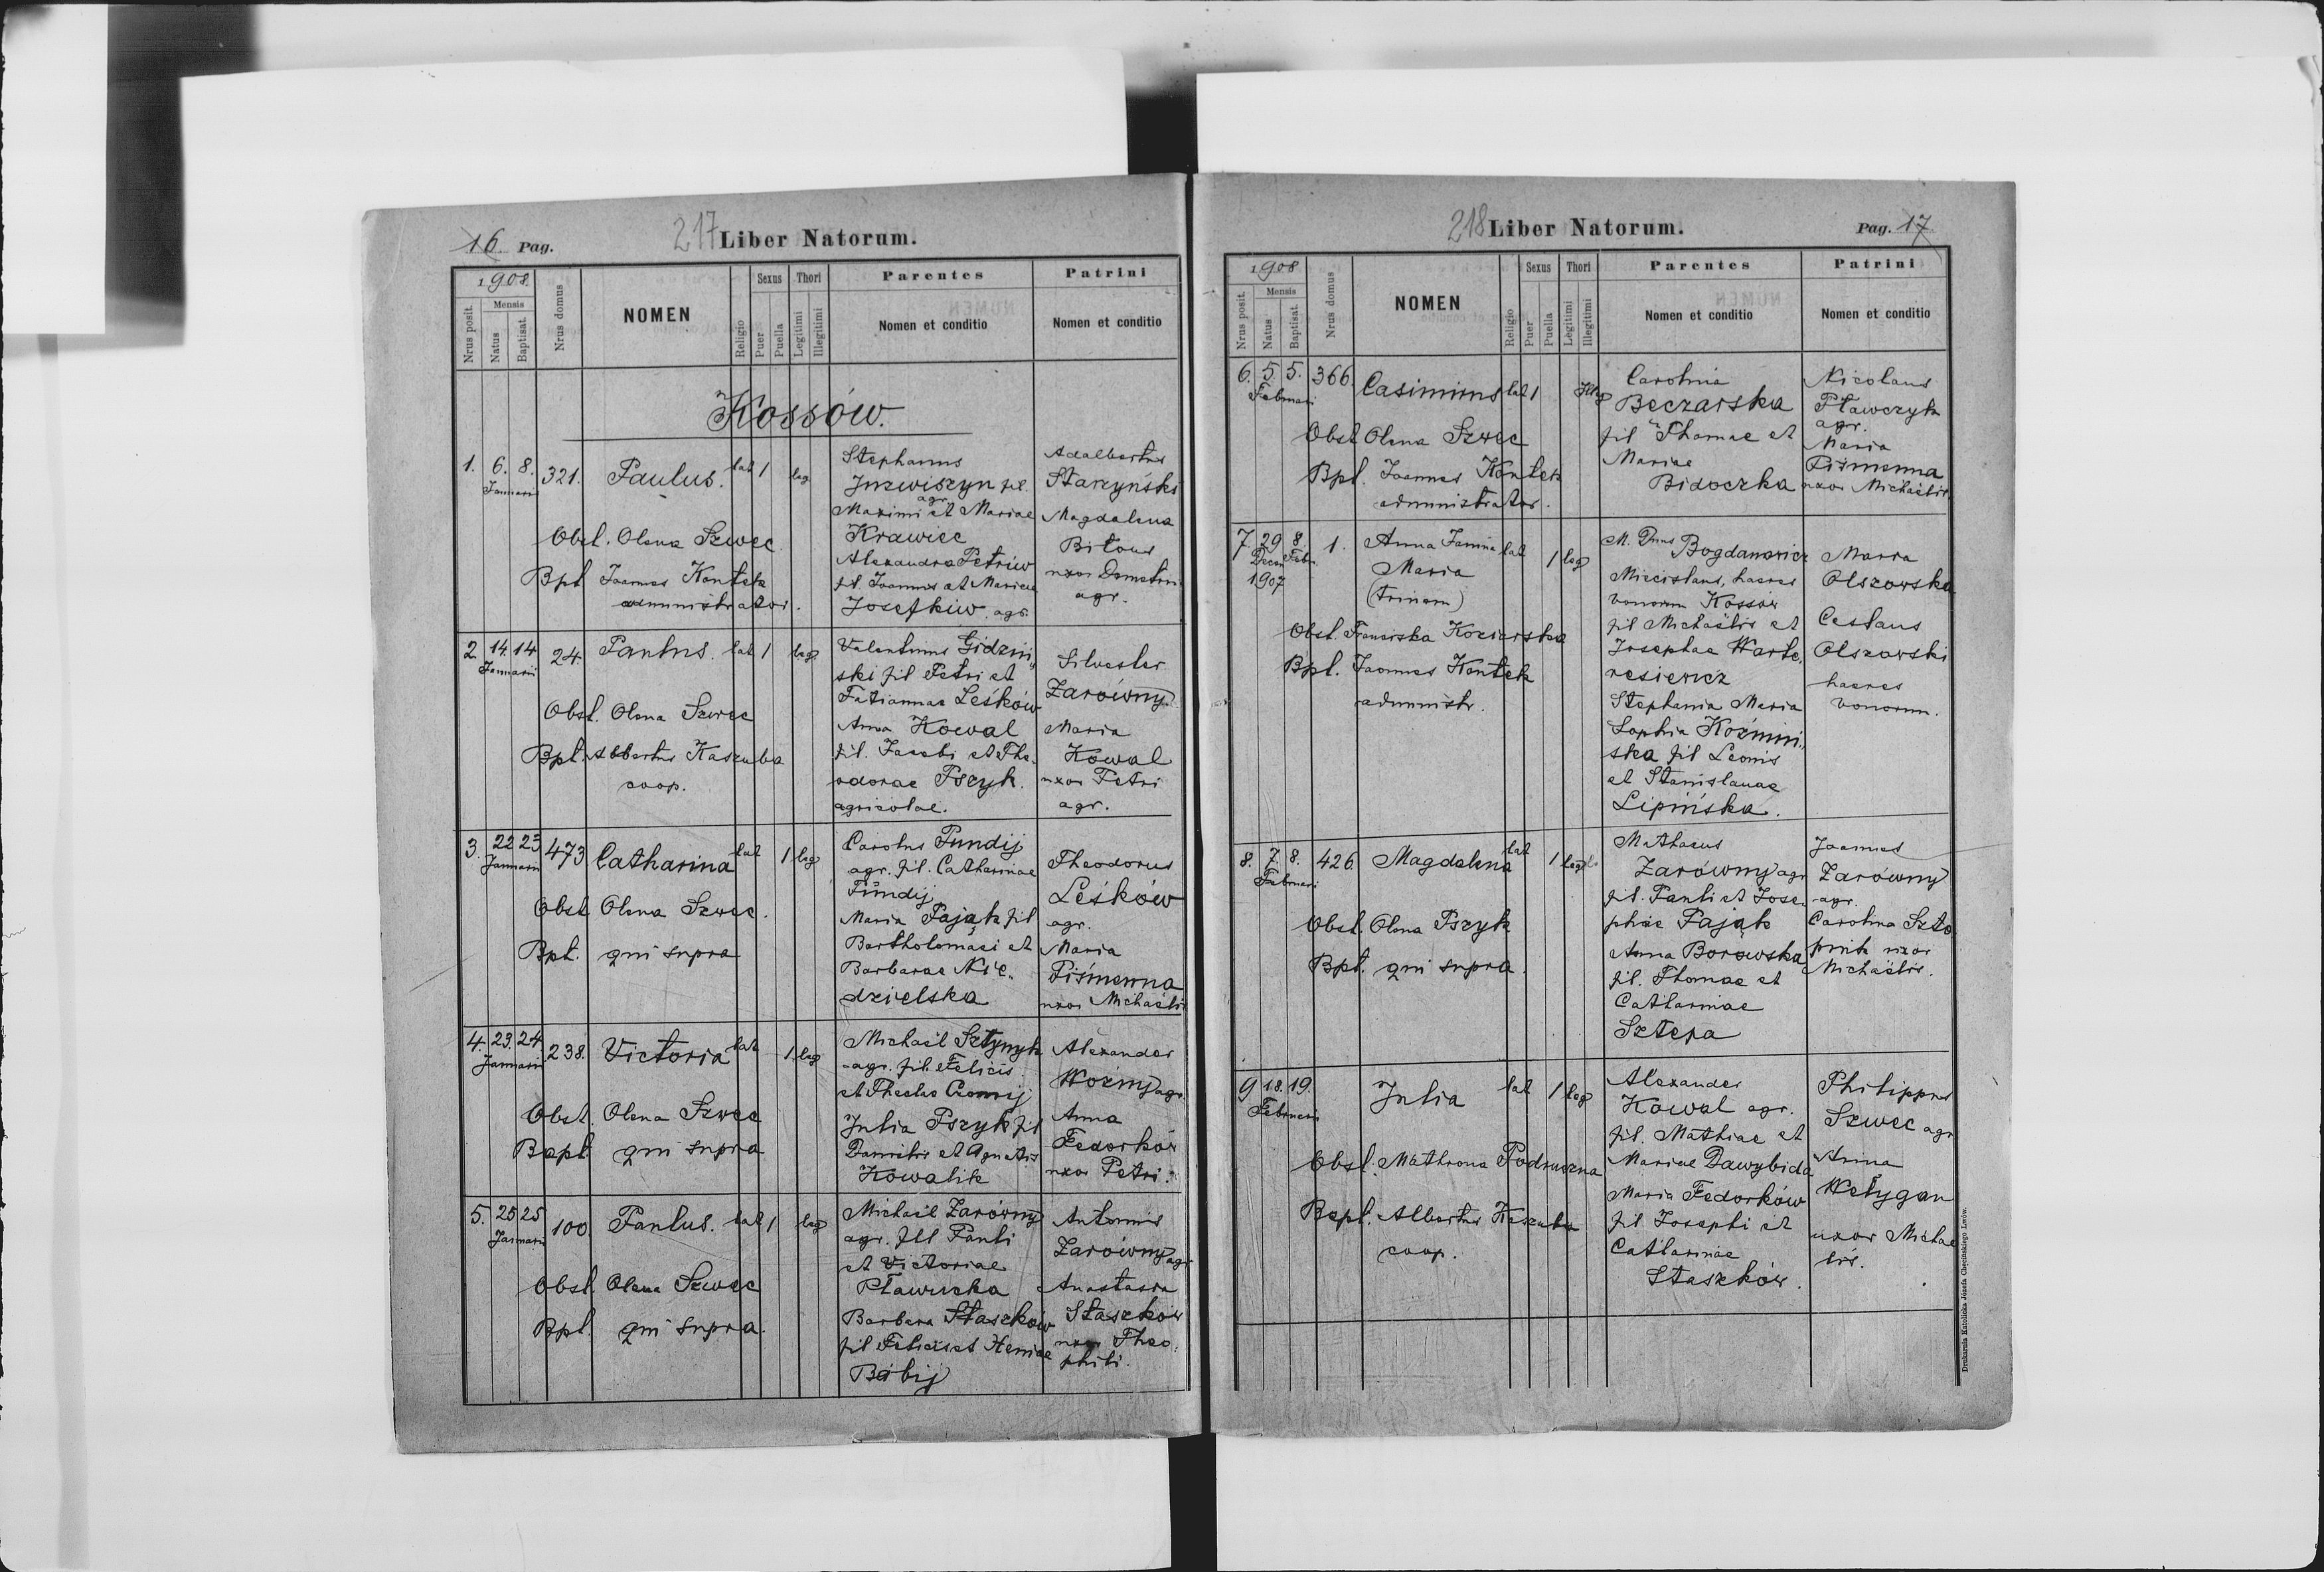 16 Pag.
217 Liber Natorum.
1908.
Nrus posit.
Mensis
Natus
Baptisat.
Nrus domus
NOMEN
Religio
Sexus
Puer
Puella
Thori
Legitimi
Illegitimi
Parentes
Nomen et conditio
Patrini
Nomen et conditio
Kossów.
1. 6. 8. 321. Paulus. lat 1 leg
Januarii
Obst. Olena Szwec
Bpt Joannes Kontek
administrator.
Stephanus
Juzwiszyn fil.
agr.
Maximi et Mariae
Krawiec
Alexandra Petriw
fil Joannis et Mariae
Josefkiw. agr.
Adalbertus
Starzyński
Magdalena
Bitous
uxor Demetrii
agr.
2. 14. 14 24. Paulus. lat 1 leg.
Januarii
Obst. Olena Szwec
Bpt. Albertus Kaszuba
coop.
Valentinus Gidziń
ski fil Petri et
Tatiannae Leśków
Anna Kowal
fil. Jacobi et Theo
odorae Pszyk.
agricolae.
Silvester
Zarówny
Maria
Kowal
uxor Petri
agr.
3. 22 23 473 Catharina lat 1 leg
Januarii
Obst. Olena Szwec.
Bpt. qui supra
Carolus Pundij
agr. fil. Catharinae
Pundij
Maria Pająk fil
Bartholomaei et
Barbarae Nie
dzielska
Theodorus
Leśków
agr.
Maria
Piśmenna
uxor Michaëlis
4. 23. 24 238. Victoria lat 1 leg
Januarii
Obst. Olena Szwec
Bapt qui supra
Michaël Sztynyk
agr. fil. Felicis
et Theclae
Julia Pszyk fil
Danielis et Agnetis
Kowalik
Alexander
Woźny agr.
Anna
Fedorków
uxor Petri.
5. 25 25 100. Paulus. lat 1 leg
Januarii
Obst. Olena Szwec
Bpt. qui supra.
Michaël Zarówny
agr. fil Pauli
et Victoriae
Pławucka
Barbara Staszków
fil Felicis et Xeniae
Babij
Antonius
Zarówny agr
Anastasia
Staszków
uxor Theo
phili.
218 Liber Natorum.
Pag. 17
1908
Nrus posit.
Mensis
Natus
Baptisat.
Nrus domus
NOMEN
Religio
Sexus
Puer
Puella
Thori
Legitimi
Illegitimi
Parentes
Nomen et conditio
Patrini
Nomen et conditio
6. 5. 5. 366. Casimirus lat 1 Illeg
Februari
Obst. Olena Szwec
Bpt. Joannes Kontek
administrator.
Carolina
Beczarska
fil Thomae et
Mariae
Bidoczka
Nicolaus
Pławczyk
agr.
Maria
Piśmenna
uxor Michaëlis.
7. 29 8. 1. Anna Janina lat 1 leg
Decem Febr.
1907
Maria
(trinom)
Obst. Franciska Koziarska
Bpt. Joannes Kontek
administr.
M. Dnus Bogdanowicz
Miecislaus, haeres
bonorum Kossów
fil Michaëlis et
Josephae Warte
resiewicz
Stephania Maria
Sophia Koźmiń
ska fil Leonis
et Stanislauae
Lipińska.
Maria
Olszowska
Ceslaus
Olszowski
haeres
bonorum.
8. 7. 8. 426. Magdalena lat 1 leg
Februari
Obst. Olena Pszyk
Bpt. qui supra.
Mathaeus
Zarówny agr
fil. Pauli et Jose
phae Pająk
Anna Borowska
fil. Thomae et
Catharinae
Sztepa
Joannes
Zarówny
agr.
Carolina Szto
pnik uxor
Michaëlis.
9 18. 19. Julia lat 1 leg
Februarii
Obst. Mathrona Podruczna
Bapt. Albertus Kaszuba
coop.
Alexander
Kowal agr.
fil. Mathiae et
Mariae Dawybida
Maria Fedorków
fil Josephi et
Catharinae
Staszków.
Philippus
Szwec agr
Anna
Wełygan
uxor Michae
lis.
Drukarnia Katolicka Józefa Chęcińskiego Lwów.